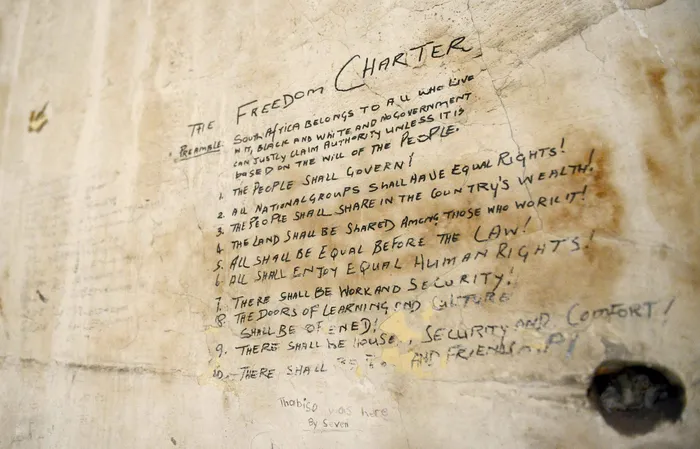 THE FREEDOM CHARTER
PREAMBLE SOUTH AFRICA BELONGS TO ALL WHO LIVE
IN IT, BLACK AND WHITE AND NO GOVERNMENT
CAN JUSTLY CLAIM AUTHORITY UNLESS IT IS
BASED ON THE WILL OF THE PEOPLE.
1. THE PEOPLE SHALL GOVERN!
2. ALL NATIONAL GROUPS SHALL HAVE EQUAL RIGHTS!
3. THE PEOPLE SHALL SHARE IN THE COUNTRY'S WEALTH!
4. THE LAND SHALL BE SHARED AMONG THOSE WHO WORK IT!
5. ALL SHALL BE EQUAL BEFORE THE LAW!
6. ALL SHALL ENJOY EQUAL HUMAN RIGHTS!
7. THERE SHALL BE WORK AND SECURITY!
8. THE DOORS OF LEARNING AND CULTURE
SHALL BE OPENED!
9. THERE SHALL BE HOUSE, SECURITY AND COMFORT!
10. THERE SHALL BE AND
Thabiso was here
By Seven